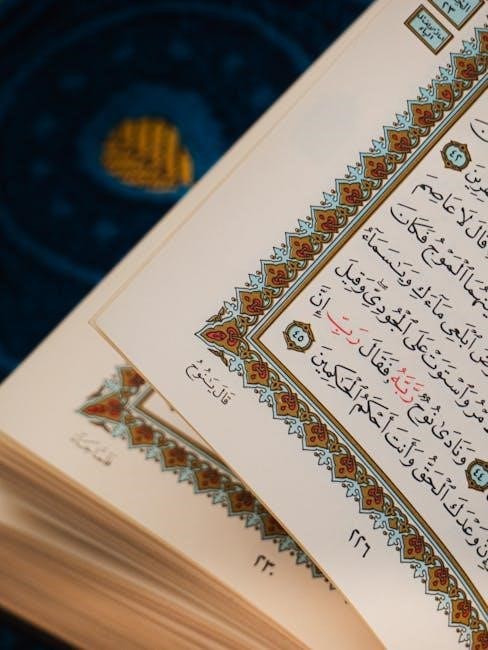 ٤٢
قَالَ لَا عَاصِمَ
بَيْنَهُمَا ٱلْمَوْجُ فَكَانَ
ٱبْلَعِى مَآءَكِ وَيَـٰسَمَآءُ
وَٱسْتَوَتْ عَلَى ٱلْجُودِىِّ ۖ وَقِيلَ
٤٤ وَنَادَىٰ نُوحٌ رَّبَّهُۥ فَقَالَ رَبِّ إِنَّ
وَعْدَكَ ٱلْحَقُّ وَأَنتَ أَحْكَمُ ٱلْحَـٰكِمِينَ ٤٥
قَالَ يَـٰنُوحُ
٢٢٦
٢٣٠